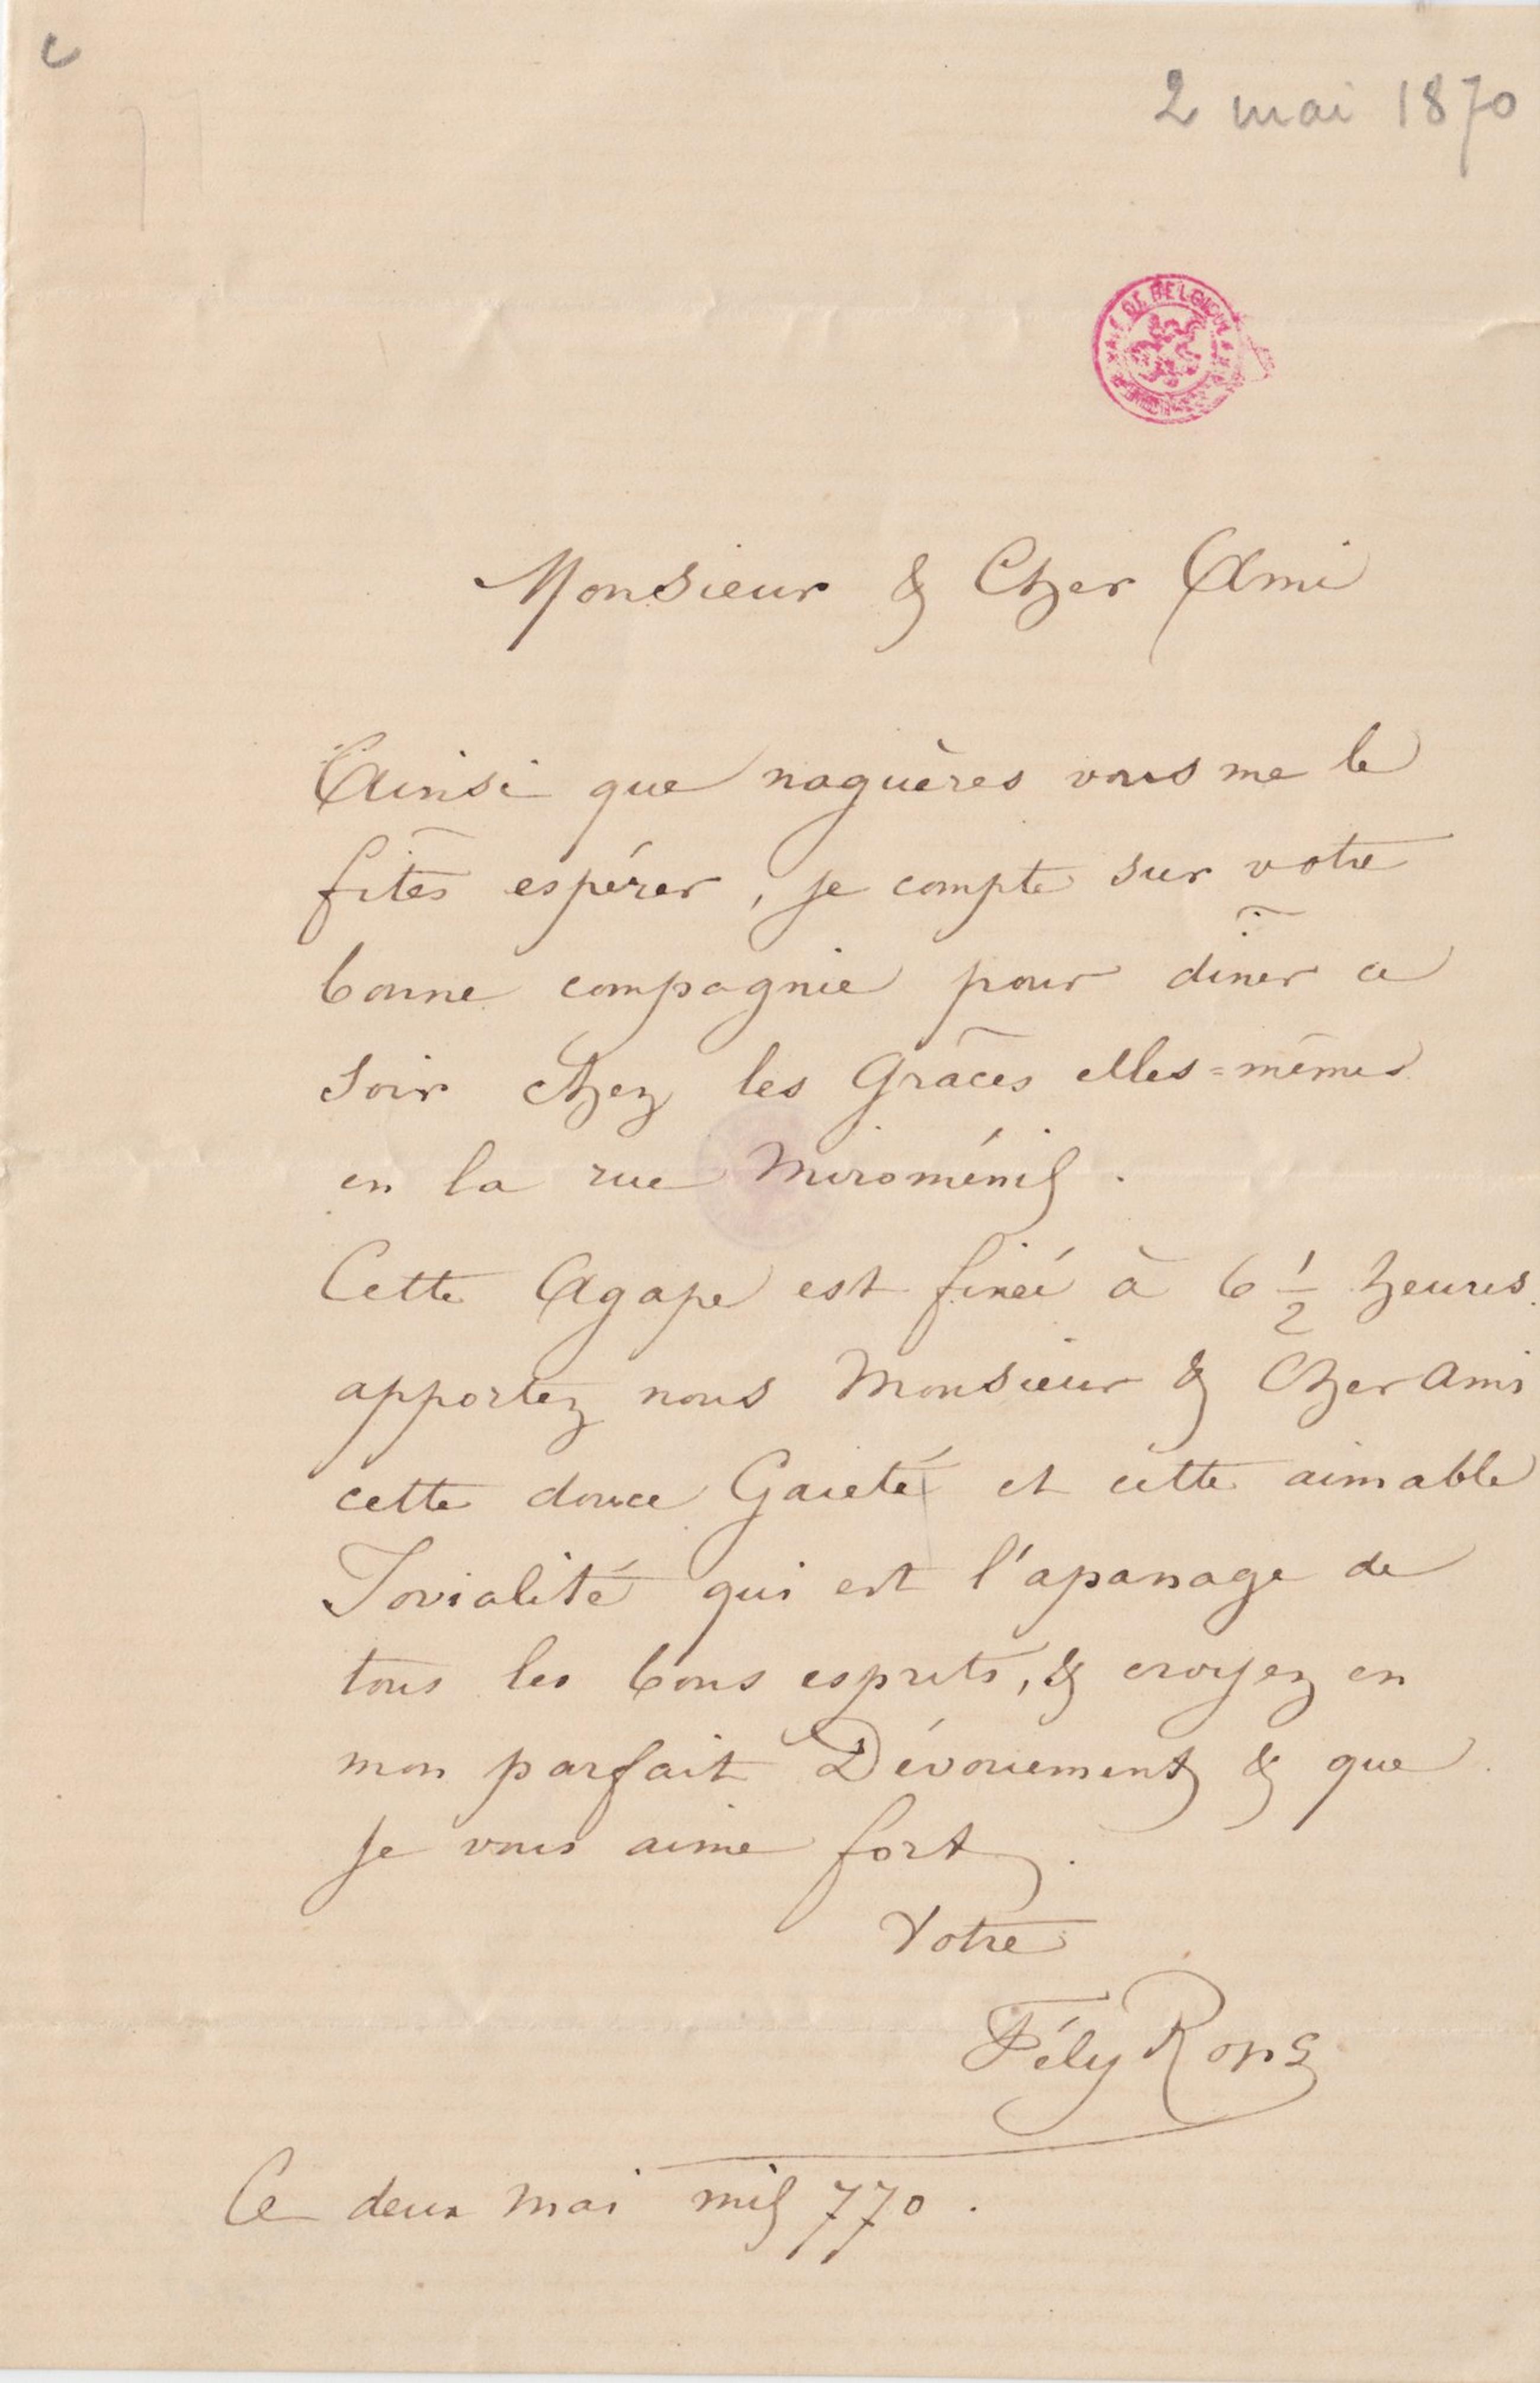 2 mai 1870
DE BELGIQUE
Monsieur & Cher Ami
Ainsi que naguères vous me le
fîtes espérer, je compte sur votre
bonne compagnie pour dîner ce
soir chez les Grâces elles=mêmes
en la rue Miroménil.
Cette Agape est fixée à 6 1/2 heures.
apportez nous Monsieur & Cher Ami
cette douce Gaieté et cette aimable
Jovialité qui est l'apanage de
tous les bons esprits, & croyez en
mon parfait Dévouement & que
je vous aime fort.
Votre
Fély Rops
Ce deux mai mil 770.